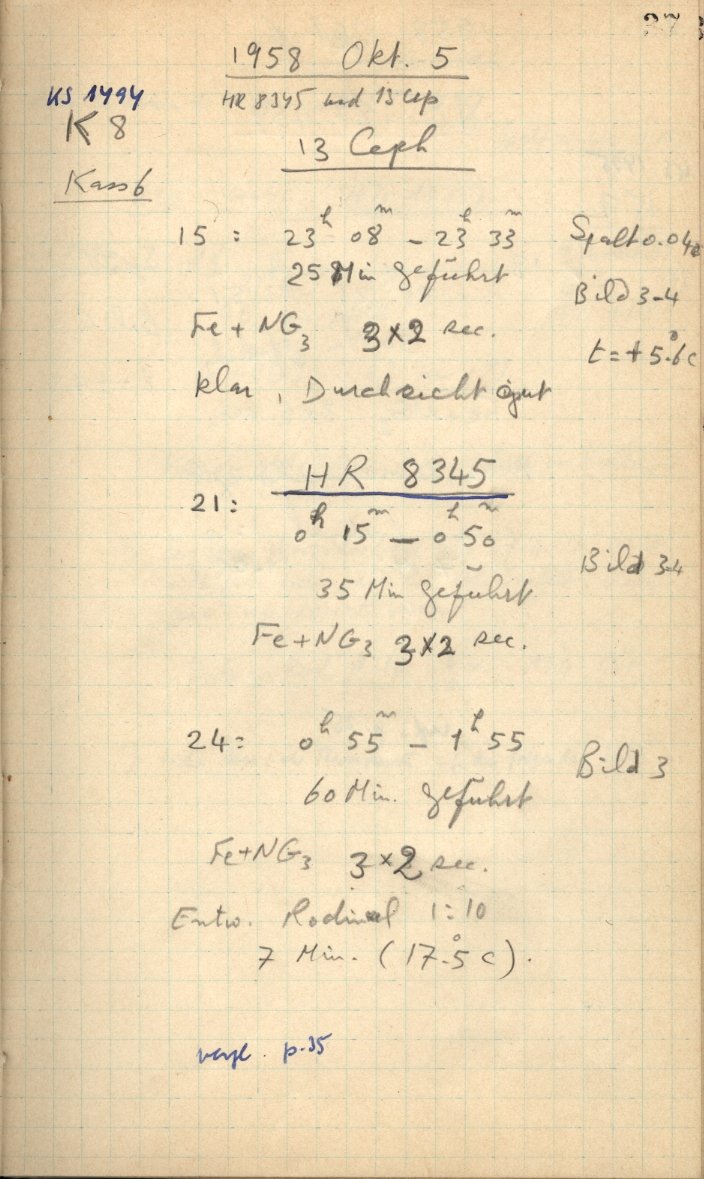 1958 Okt. 5
KS 1494
HR 8345 und 13 Cep
K 8
13 Ceph
Kass 6
15 : 23h 08m - 23h 33m Spalt 0.04
25 Min geführt
Bild 3-4
Fe + NG3 3x2 sec.
t = + 5.°6 C
klar, Durchsicht gut
HR 8345
21 :
0h 15m - 0h 50m
Bild 3-4
35 Min geführt
Fe+NG3 3x2 sec.
24 : 0h 55m - 1h 55
Bild 3
60 Min. geführt
Fe+NG3 3x2 sec.
Entw. Rodinal 1:10
7 Min. (17.°5 C).
vergl. p.35